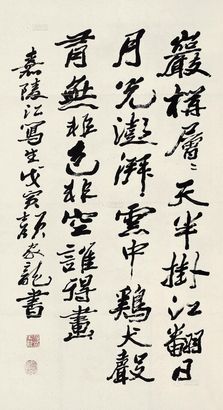 巖層〻天半掛江翻日
月光澎湃雲中鷄犬聲
無非色非空誰得畫
嘉陵江寫生戊寅顏家龍書